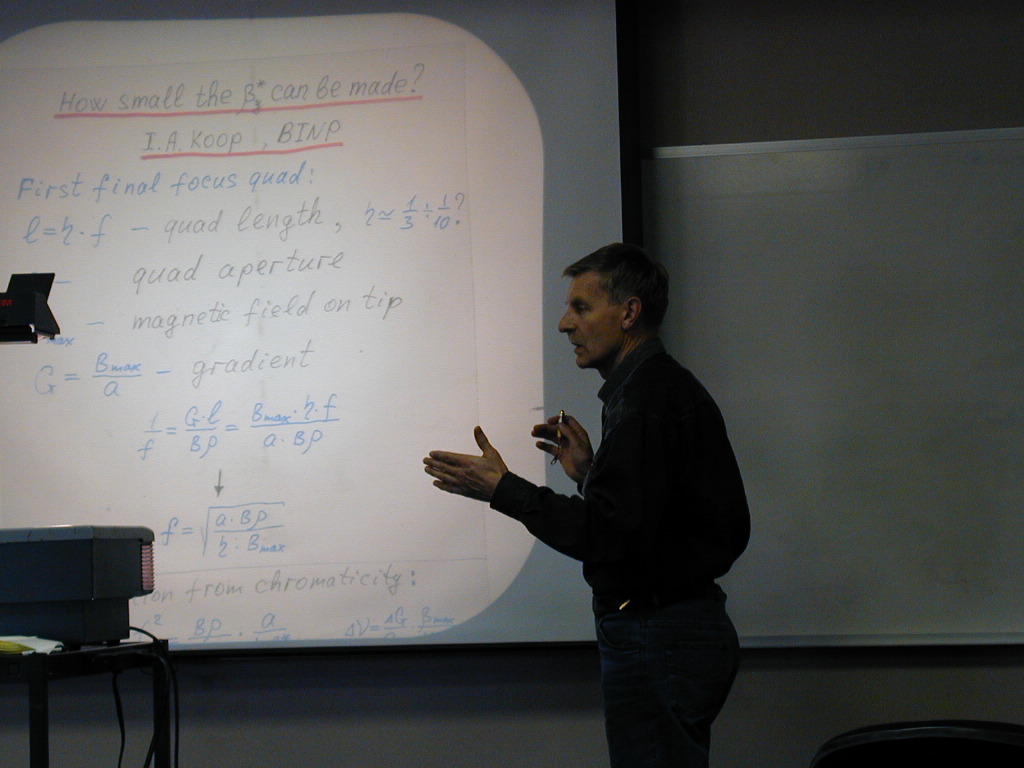 How small the β*z can be made?
I.A. Koop, BINP
First final focus quad:
l = η · f — quad length, η ≃ 1/3 ÷ 1/10?
— quad aperture
max — magnetic field on tip
G = Bmax/a — gradient
1/f = G·l/Bρ = Bmax·η·f/a·Bρ
↓
f = √(a·Bρ/η·Bmax)
from chromaticity:
2 Bρ · a Δν = ΔG Bmax